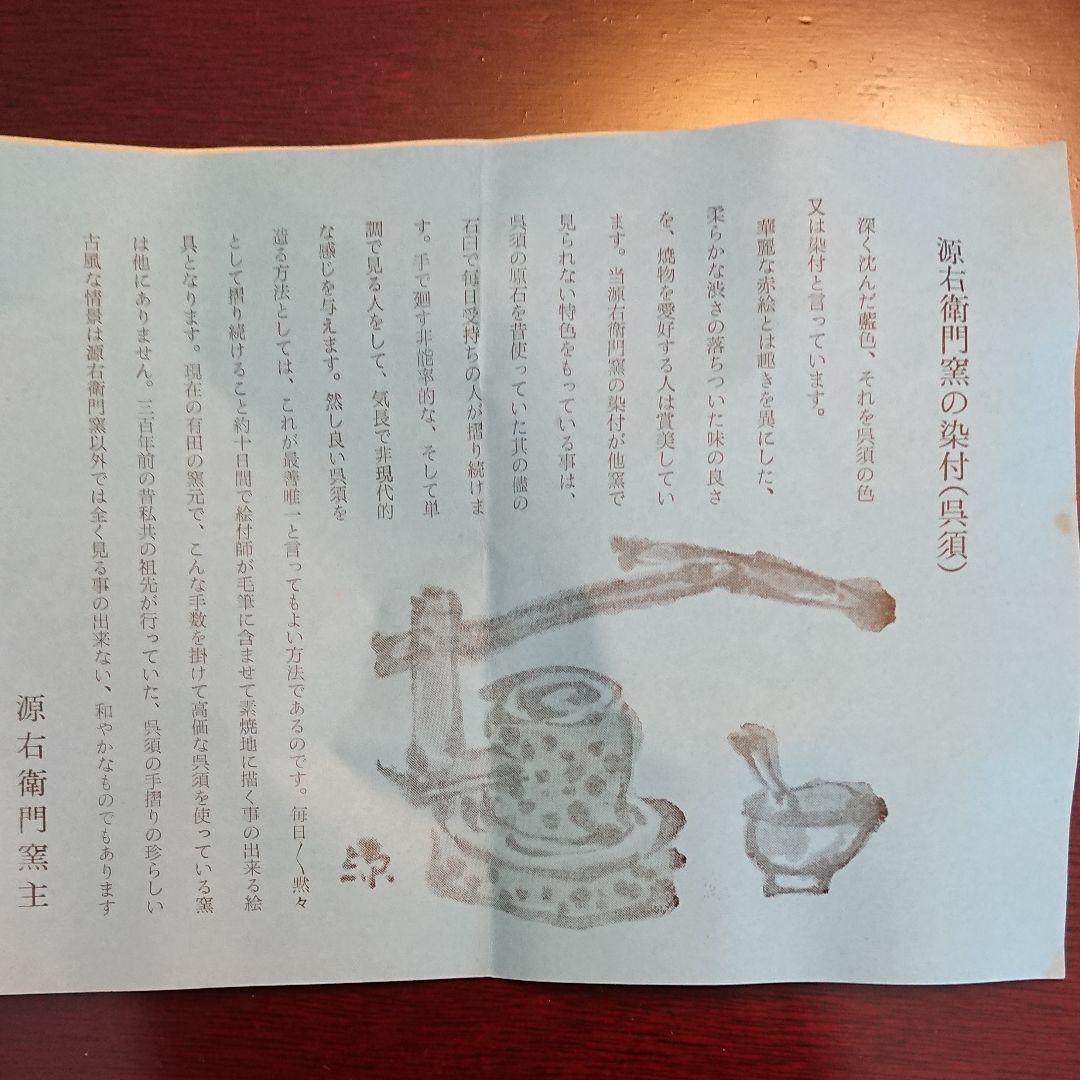 源右衛門窯の染付(呉須)
深く沈んだ藍色、それを呉須の色
又は染付と言っています。
華麗な赤絵とは趣きを異にした、
柔らかな渋さの落ちついた味の良さ
を、焼物を愛好する人は賞美してい
ます。当源右衛門窯の染付が他窯で
見られない特色をもっている事は、
呉須の原石を昔使っていた其の儘の
石臼で毎日受持ちの人が摺り続けま
す。手で廻す非能率的な、そして単
調で見る人をして、気長で非現代的
な感じを与えます。然し良い呉須を
造る方法としては、これが最善唯一と言ってもよい方法であるのです。毎日〱黙々
として摺り続けること約十日間で絵付師が毛筆に含ませて素焼地に描く事の出来る絵
具となります。現在の有田の窯元で、こんな手数を掛けて高価な呉須を使っている窯
は他にありません。三百年前の昔私共の祖先が行っていた、呉須の手摺りの珍らしい
古風な情景は源右衛門窯以外では全く見る事の出来ない、和やかなものでもあります
源右衛門窯主
源